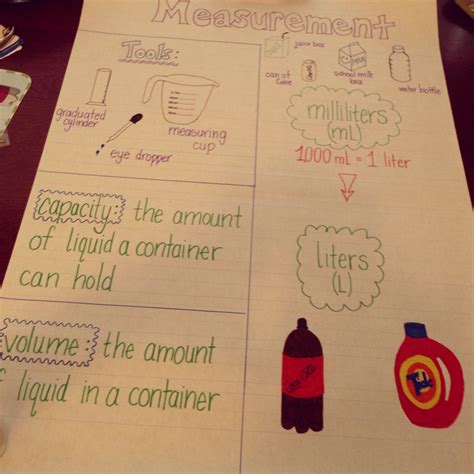 Measurement
Tools:
graduated
cylinder
measuring
cup
eye dropper
capacity: the amount
of liquid a container
can hold
volume: the amount
liquid in a container
juice box
can of
Coke
school milk
box
water bottle
milliliters
(mL)
1,000 mL = 1 liter
liters
(L)
Coca-Cola
Tide